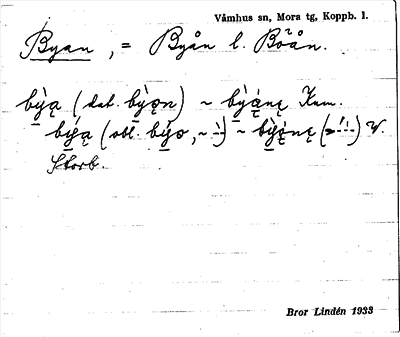 Våmhus sn, Mora tg, Koppb. l.
Byan, = Byån l. Boån.
bỳą (dat. bỳǫn) ~ bỳą́nę Knm.
bý̀ą (obl. bý̀o, ~ ) ~ bỳą́nę V.
Storb.
Bror Lindén 1933